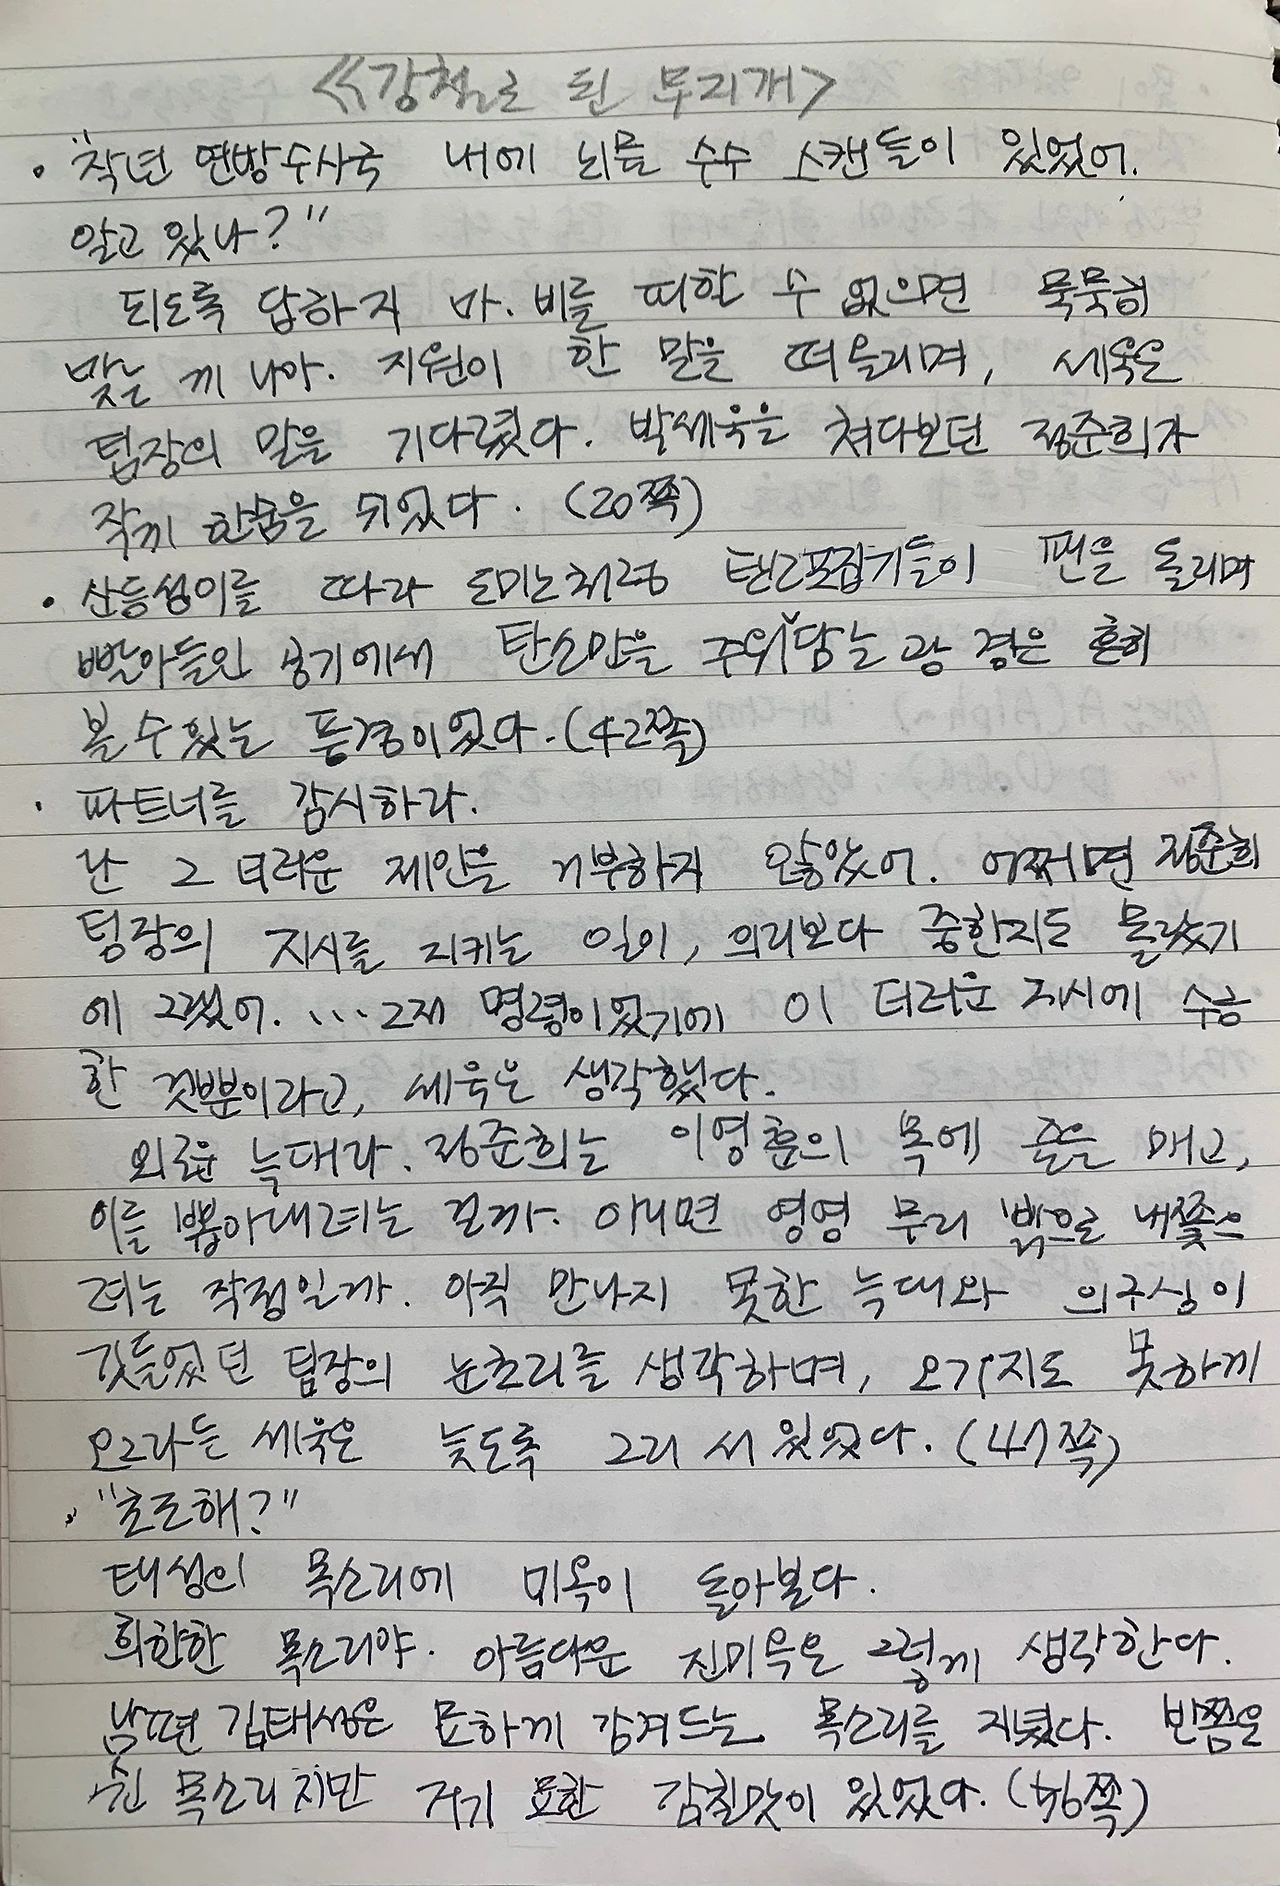 <<강철로 된 무지개>
· "작년 연방수사국 내에 뇌물 수수 스캔들이 있었어.
알고 있나?"
되도록 답하지 마. 비를 피할 수 없으면 묵묵히
맞는 게 나아. 지원이 한 말을 떠올리며, 세욱은
팀장의 말을 기다렸다. 박세욱을 쳐다보던 정준희가
작게 한숨을 쉬었다. (20쪽)
· 산등성이를 따라 도미노처럼 탄소포집기들이 팬을 돌리며
빨아들인 공기에서 탄소만을 주워담는 광경은 흔히
볼 수 있는 풍경이었다. (42쪽)
· 파트너를 감시하라.
난 그 더러운 제안을 거부하지 않았어. 어쩌면 정준희
팀장의 지시를 지키는 일이, 의리보다 중한지도 몰랐기
에 그랬어. ...그저 명령이었기에 이 더러운 지시에 수긍
한 것뿐이라고, 세욱은 생각했다.
외로운 늑대라. 정준희는 이영훈의 목에 줄을 매고,
이를 뽑아내려는 걸까. 아니면 영영 무리 밖으로 내쫓으
려는 작정일까. 아직 만나지 못한 늑대와 의구심이
깃들었던 팀장의 눈초리를 생각하며, 오가지도 못하게
오그라든 세욱은 늦도록 그리 서 있었다. (47쪽)
· "초조해?"
태성의 목소리에 미옥이 돌아본다.
희한한 목소리야. 아름다운 진미옥은 그렇게 생각한다.
남편 김태성은 묘하게 감겨드는 목소리를 지녔다. 반쯤은
쉰 목소리지만 거기 묘한 감칠맛이 있었다. (56쪽)